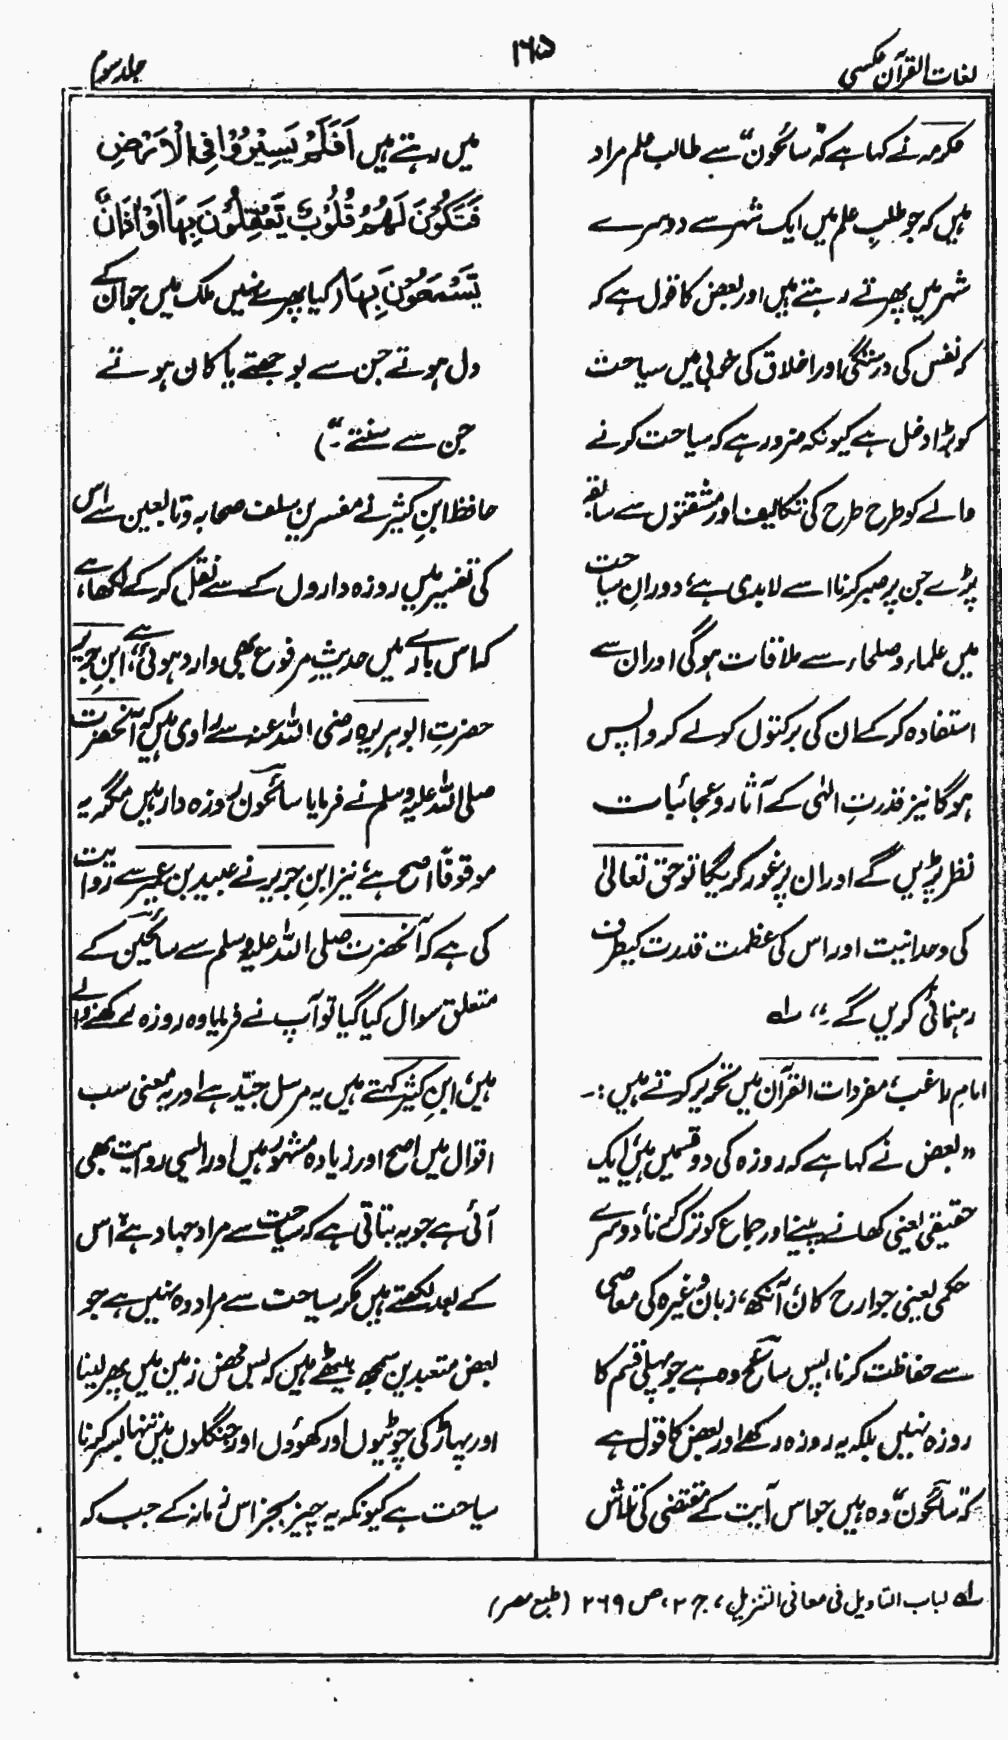 لغات القرآن عکسی
۱۶۵
جلد سوم
عکرمہ نے کہا ہے کہ "سائحون" سے طالب علم مراد
ہیں کہ جو طلبِ علم میں ایک شہر سے دوسرے
شہر میں پھرتے رہتے ہیں اور بعض کا قول ہے کہ
کہ نفس کی درستگی اور اخلاق کی خوبی میں سیاحت
کو بڑا دخل ہے کیونکہ ضرور ہے کہ سیاحت کرنے
والے کو طرح طرح کی تکالیف اور مشقتوں سے سابقہ
پڑے جن پر صبر کرنا اسے لابدی ہے، دورانِ سیاحت
میں علماء و صلحاء سے ملاقات ہوگی اور ان سے
استفادہ کر کے ان کی برکتوں کو لے کر واپس
ہوگا نیز قدرتِ الٰہی کے آثار و عجائبات
نظر پڑیں گے اور ان پر غور کریگا تو حق تعالیٰ
کی وحدانیت اور اس کی عظمت قدرت کیطرف
رہنمائی کریں گے ۔،، لہ
امام راغب، مفردات القرآن میں تحریر کرتے ہیں :۔
"بعض نے کہا ہے کہ روزہ کی دو قسمیں ہیں، ایک
حقیقی یعنی کھانے پینے اور جماع کو ترک کرنا، دوسرے
حکمی یعنی جوارح کان، آنکھ، زبان وغیرہ کی معاصی
سے حفاظت کرنا، پس سائح وہ ہے جو پہلی قسم کا
روزہ نہیں بلکہ یہ روزہ رکھے اور بعض کا قول ہے
کہ "سائحون" وہ ہیں جو اس آیت کے مقتضی کی تلاش
میں رہتے ہیں اَفَلَمْ یَسِیْرُوْا فِی الْاَرْضِ
فَتَکُوْنَ لَھُمْ قُلُوْبٌ یَّعْقِلُوْنَ بِہَا اَوْ اٰذَانٌ
یَّسْمَعُوْنَ بِہَا (کیا پھرے نہیں ملک میں جو ان کے
دل ہوتے جن سے بوجھتے یا کان ہوتے
جن سے سنتے ۔")
حافظ ابنِ کثیر نے مفسرینِ سلف صحابہ و تابعین سے اس
کی تفسیر میں روزہ داروں کے سے نقل کر کے لکھا ہے،
کہ اس بارے میں حدیثِ مرفوع بھی وارد ہوئی ہے، ابنِ جریر
حضرتِ ابوہریرہ رضی اللہ عنہ سے راوی ہیں کہ آنحضرت
صلی اللہ علیہ وسلم نے فرمایا سائحون روزہ دار ہیں مگر یہ
موقوفاً اصح ہے، نیز ابنِ جریر نے عبید بن عمیر سے روایت
کی ہے کہ آنحضرت صلی اللہ علیہ وسلم سے سائحین کے
متعلق سوال کیا گیا تو آپ نے فرمایا وہ روزہ رکھنے والے
ہیں، ابنِ کثیر کہتے ہیں یہ مرسل جیّد ہے اور یہ معنی سب
اقوال میں اصح اور زیادہ مشہور ہیں اور ایسی روایت بھی
آئی ہے جو یہ بتاتی ہے کہ سیاحت سے مراد جہاد ہے، اس
کے بعد لکھتے ہیں مگر سیاحت سے مراد وہ نہیں ہے جو
بعض متعبدین سمجھ بیٹھے ہیں کہ بس محض زمین میں پھر لینا
اور پہاڑ کی چوٹیوں اور کھوؤں اور جنگلوں میں تنہا بسر کرنا
سیاحت ہے کیونکہ یہ چیز بجز اس زمانہ کے جب کہ
لہ لباب التاویل فی معانی التنزیل، ج ۲، ص ۲۶۹ (طبع مصر)